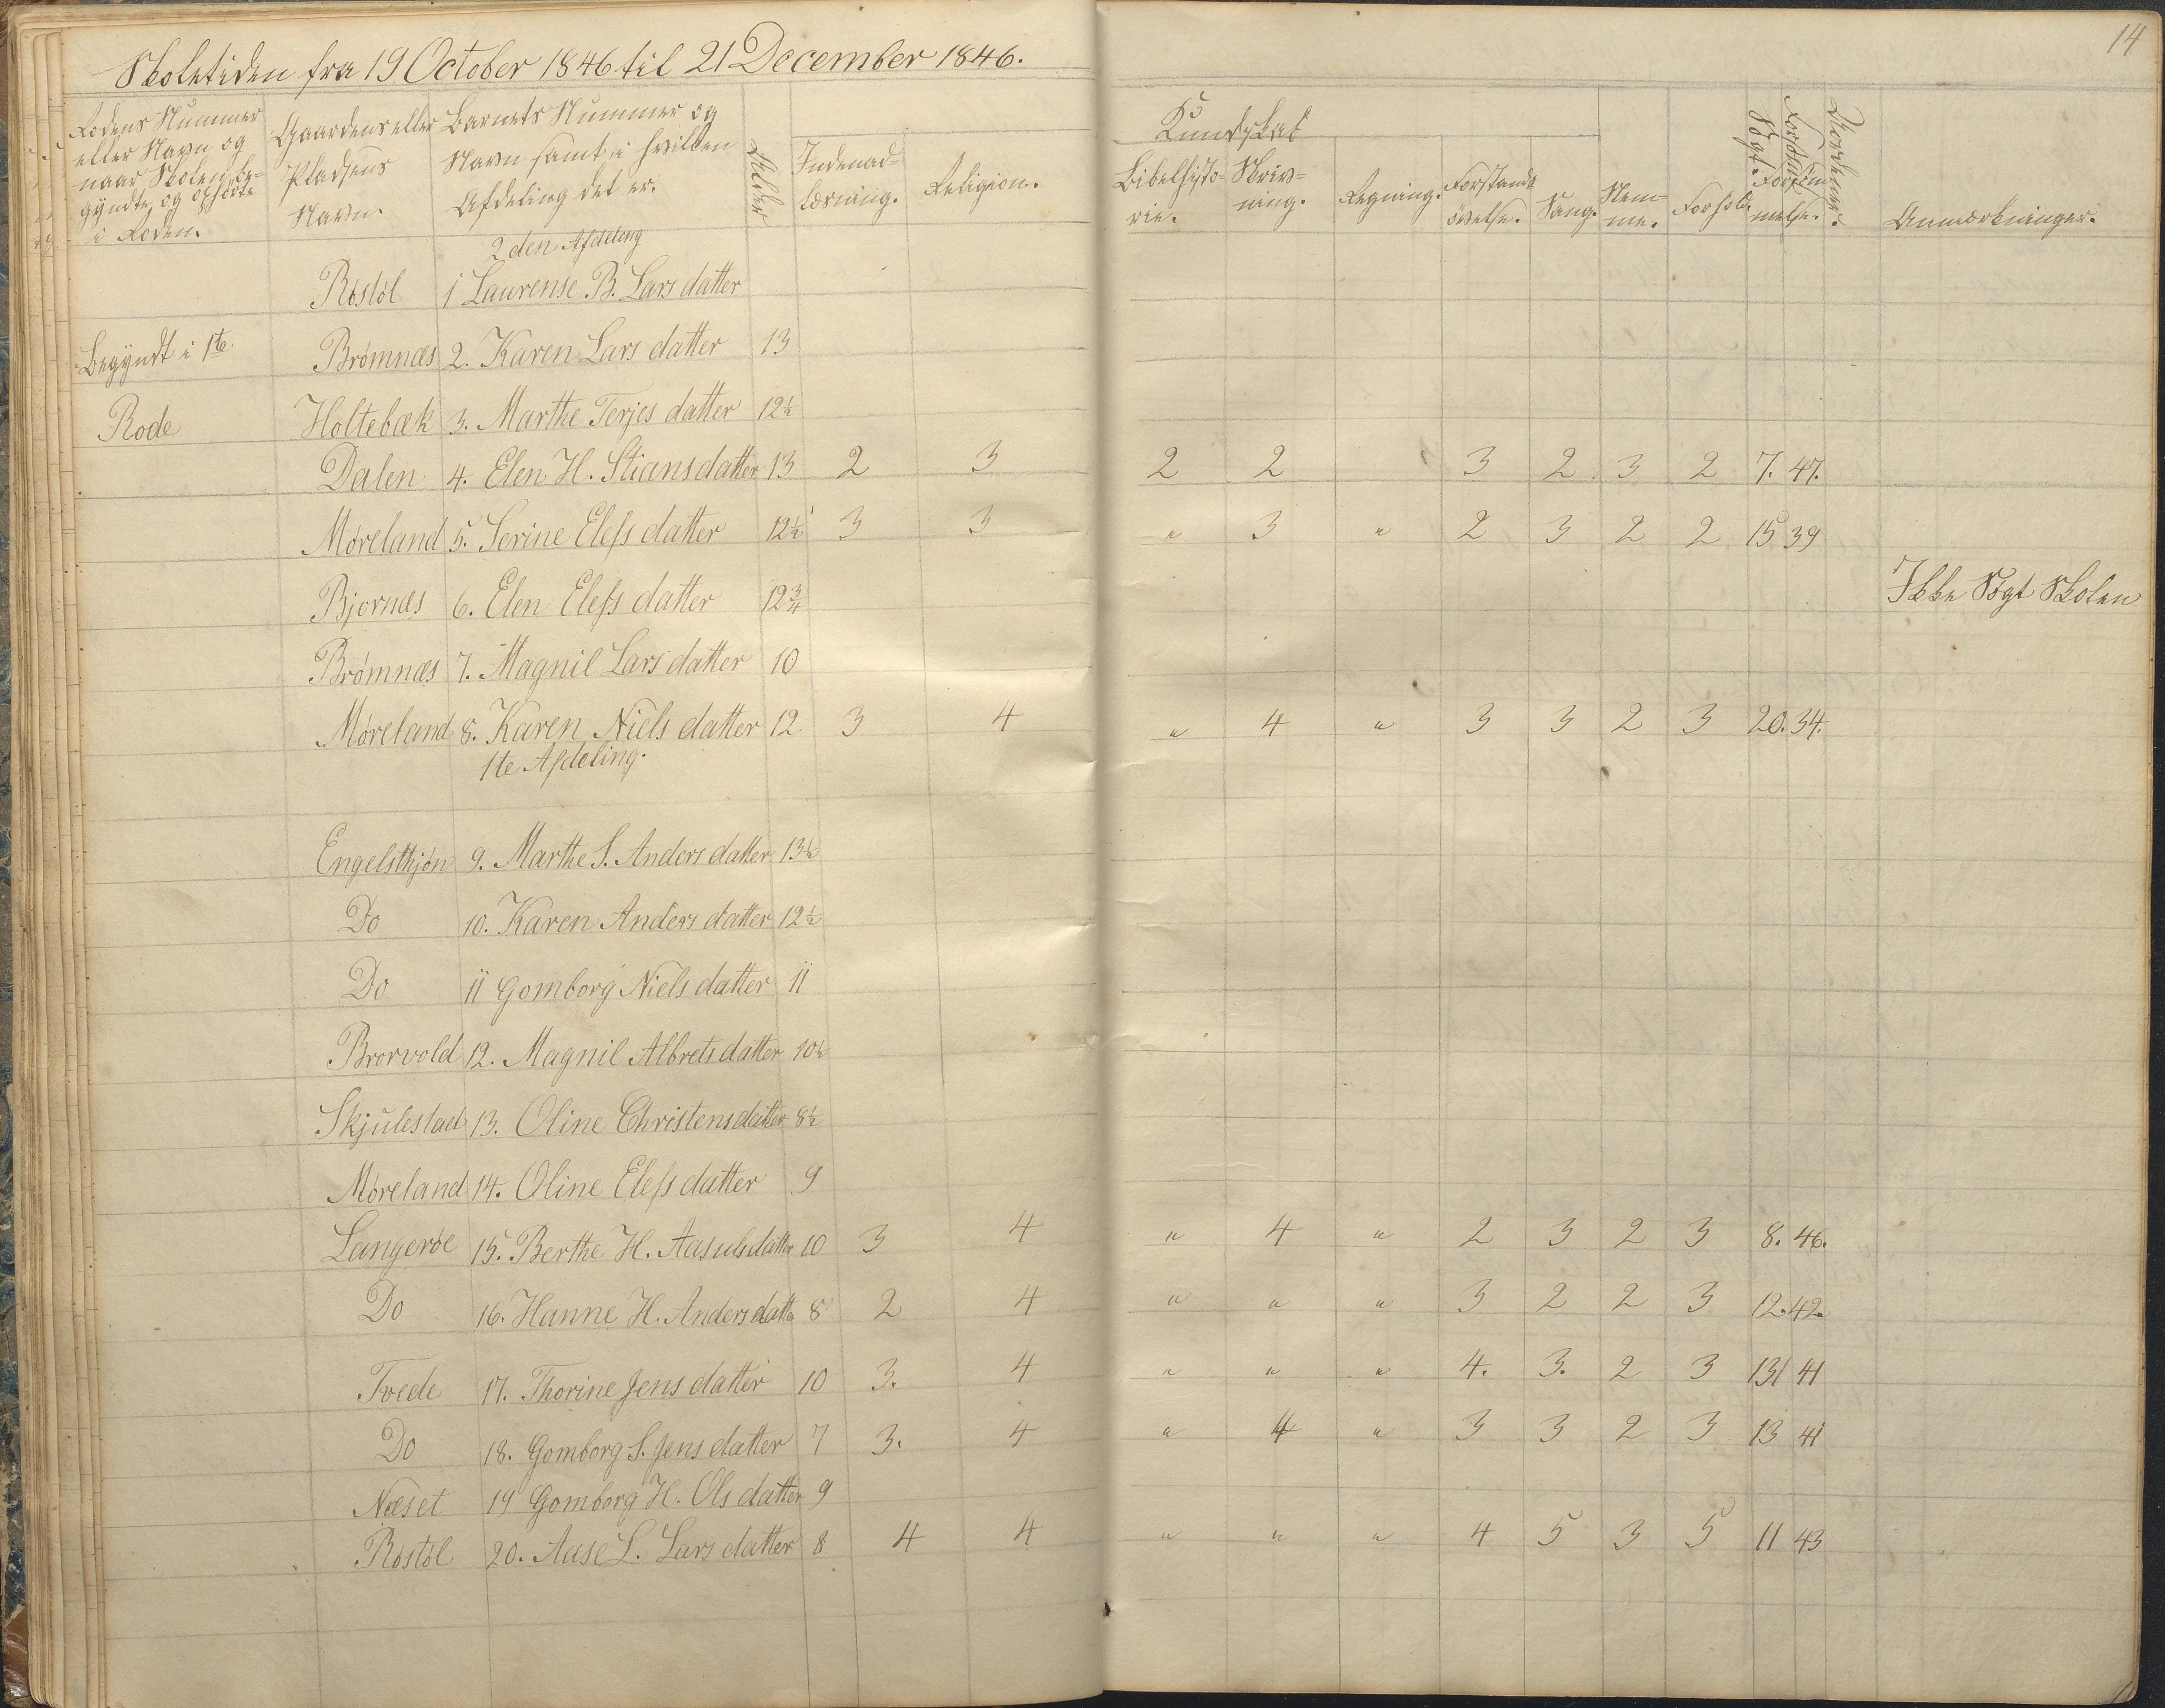 14
Skoletiden fra 19 October 1846 til 21 December 1846.
Rodens Nummer eller Navn og naar Skolen begyndte og ophørte i Roden.
Gaardens eller Pladsens Navn.
Barnets Nummer og Navn samt i hvilken Afdeling det er.
Alder
Kundskab
Indenadlæsning.
Religion.
Bibelhistorie.
Skrivning.
Regning.
Forstandsøvelse.
Sang.
Nemme.
Forhold.
Søgt.
Forsømmelse.
Anmærkninger.
2den Afdeling
Røstøl 1 Laurense B. Larsdatter
Begyndt i 1te Brømnæs 2. Karen Larsdatter 13
Rode Holtebæk 3. Marthe Terjesdatter 12½
Dalen 4. Elen H. Stiansdatter 13 2 3 2 2 3 2 3 2 7. 47.
Møreland 5. Serine Elefsdatter 12½ 3 3 " 3 " 2 3 2 2 15 39
Bjornæs 6. Elen Elefsdatter 12¾ Ikke Søgt Skolen
Brømnæs 7. Magnil Larsdatter 10
Møreland 8. Karen Nielsdatter 12 3 4 " 4 " 3 3 2 3 20. 34.
1te Afdeling.
Engelsthjøn 9. Marthe S. Andersdatter 13½
Do 10. Karen Andersdatter 12½
Do 11 Gomborg Nielsdatter 11
Brorvold 12. Magnil Albretsdatter 10½
Skjulestad 13. Oline Christensdatter 8½
Møreland 14. Oline Elefsdatter 9
Langerøe 15. Berthe H. Aasulsdatter 10 3 4 " 4 " 2 3 2 3 8. 46.
Do 16. Hanne H. Andersdatte 8 2 4 " " " 3 2 2 3 12. 42.
Tvede 17. Thorine Jensdatter 10 3. 4 " " " 4. 3. 2 3 13 41
Do 18. Gomborg S. Jensdatter 7 3. 4 " 4 " 3 3 2 3 13 41
Næset 19 Gomborg H. Olsdatter 9
Røstøl 20. Aase L. Larsdatter 8 4 4 " " " 4 5 3 5 11 43